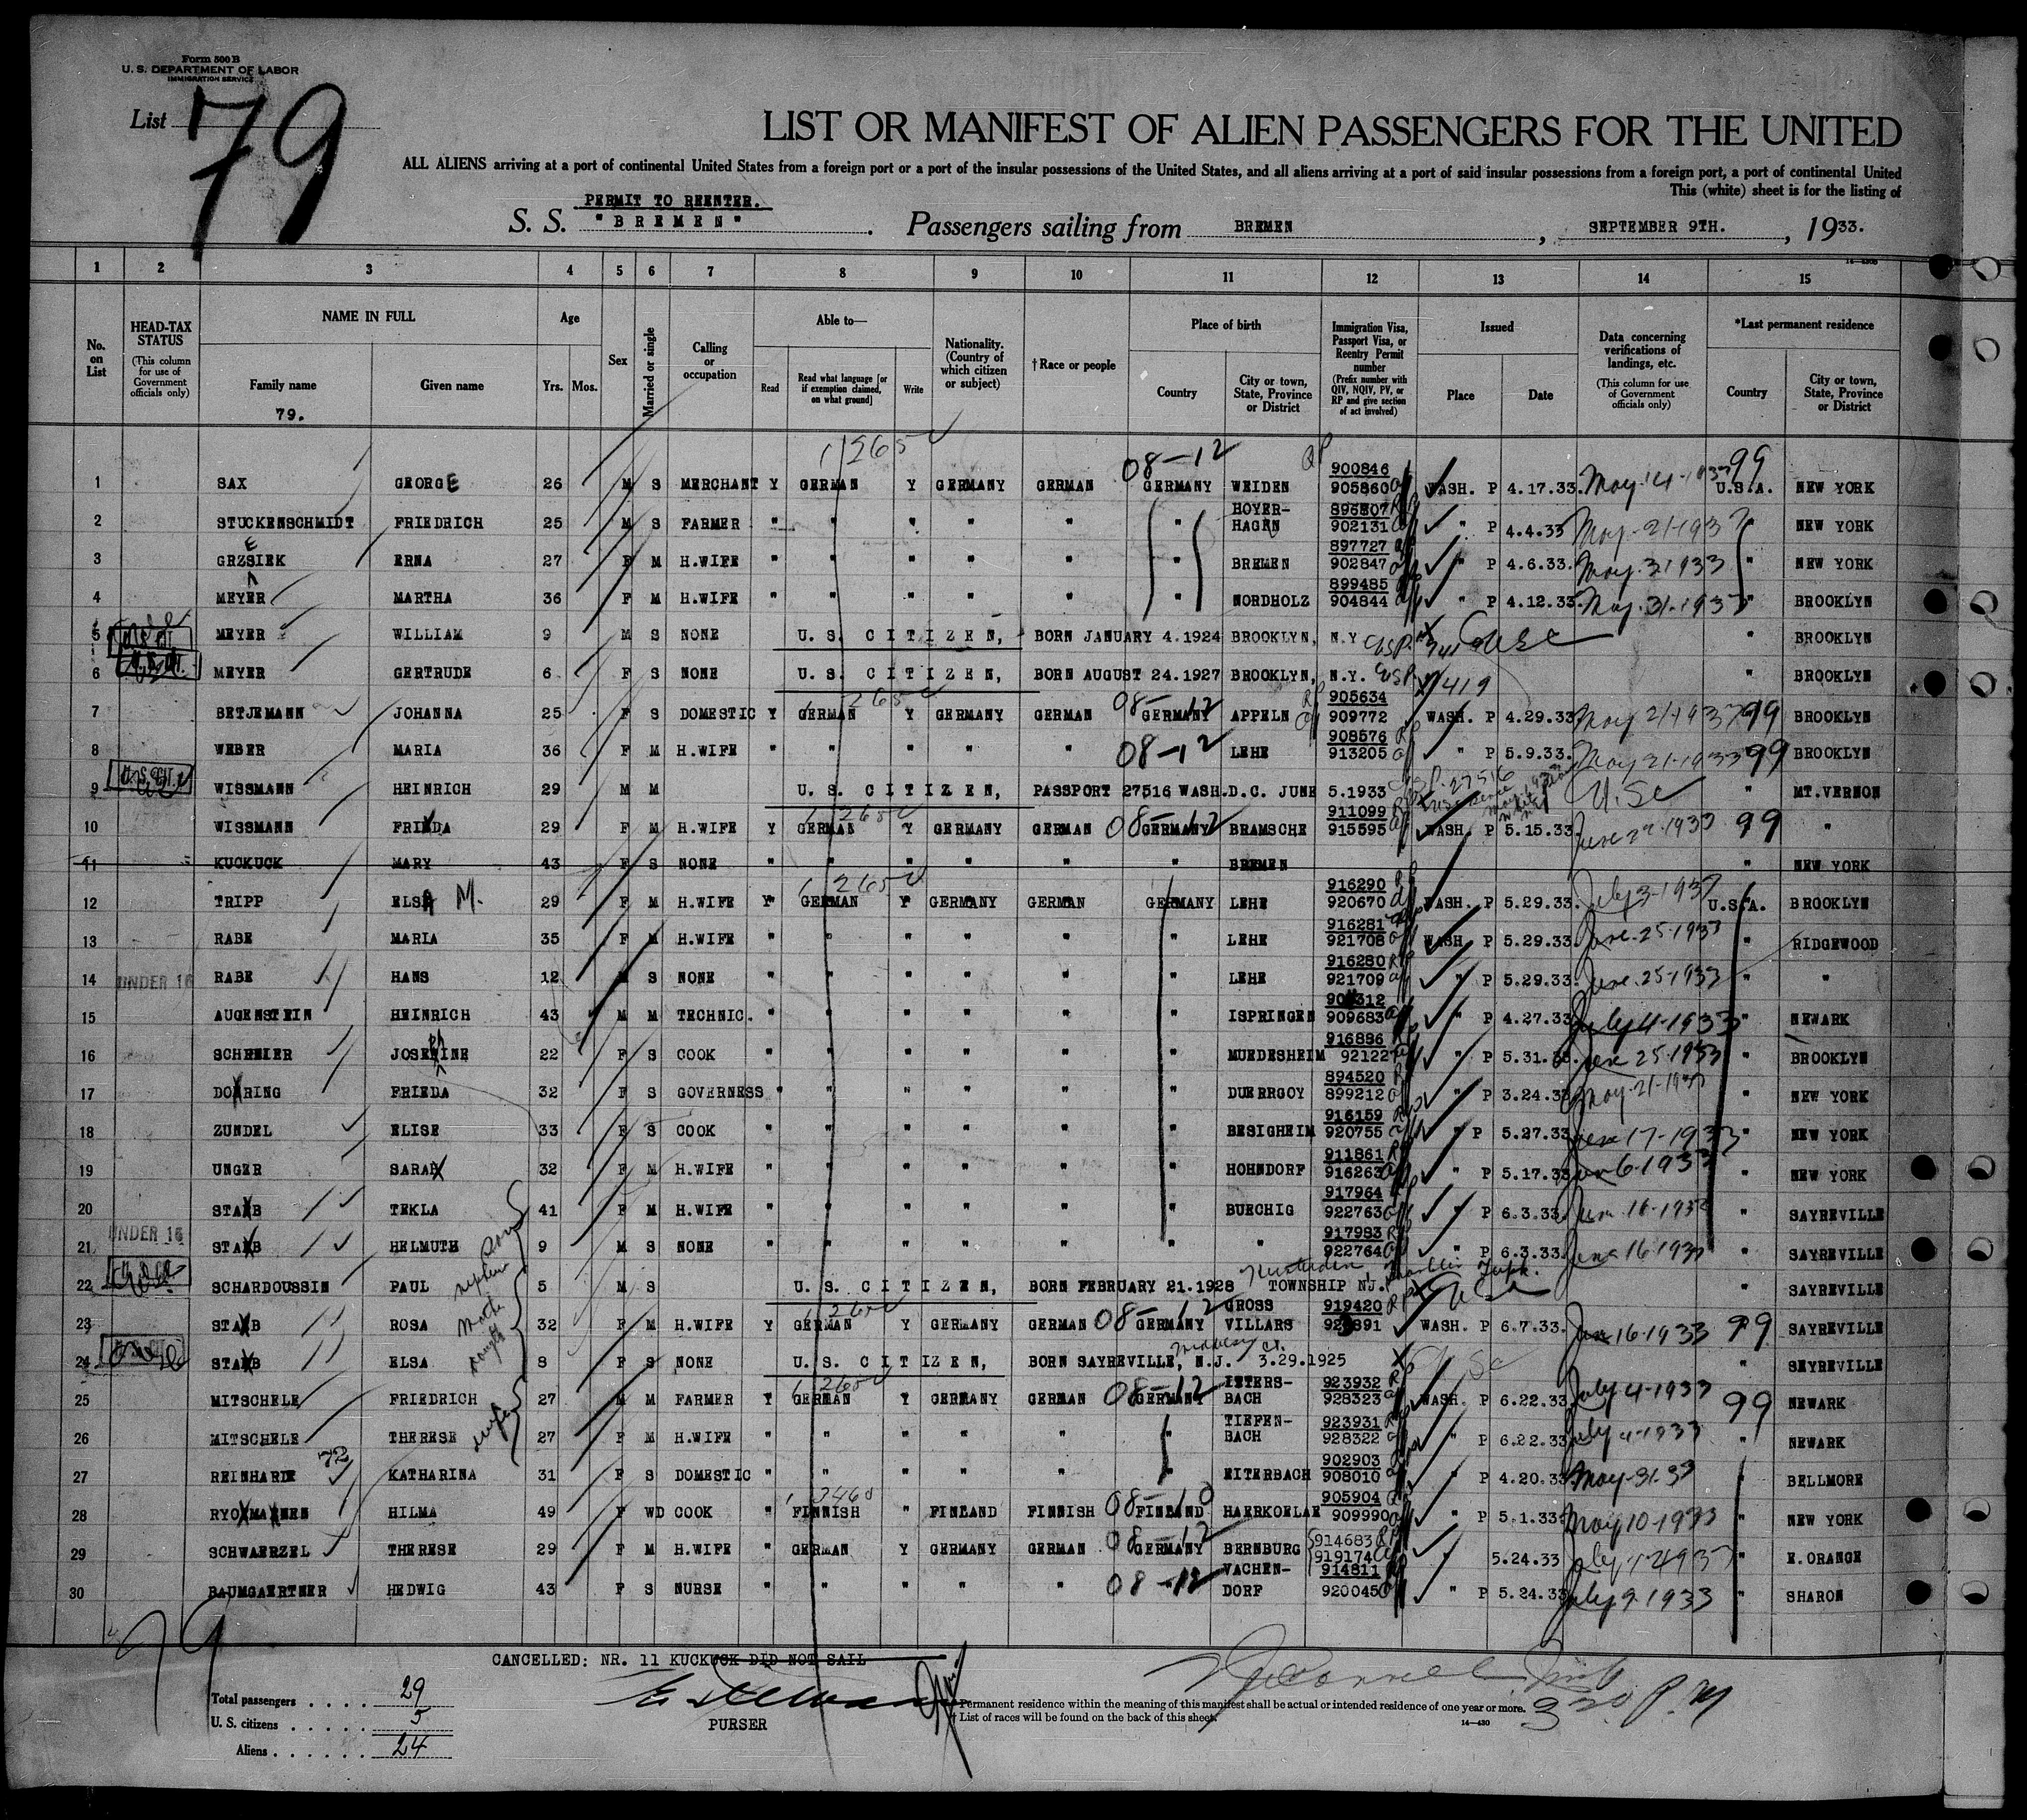 Form 500 B
U. S. DEPARTMENT OF LABOR
IMMIGRATION SERVICE
List 79
LIST OR MANIFEST OF ALIEN PASSENGERS FOR THE UNITED
ALL ALIENS arriving at a port of continental United States from a foreign port or a port of the insular possessions of the United States, and all aliens arriving at a port of said insular possessions from a foreign port, a port of continental United
This (white) sheet is for the listing of
PERMIT TO REENTER.
S. S. "BREMEN". Passengers sailing from BREMEN, SEPTEMBER 9TH., 1933.
14—430b
1 2 3 4 5 6 7 8 9 10 11 12 13 14 15
No. on List
HEAD-TAX STATUS
(This column for use of Government officials only)
NAME IN FULL
Family name
79.
Given name
Age
Yrs. Mos.
Sex
Married or single
Calling or occupation
Able to—
Read
Read what language [or if exemption claimed, on what ground]
Write
Nationality. (Country of which citizen or subject)
†Race or people
Place of birth
Country
City or town, State, Province or District
Immigration Visa, Passport Visa, or Reentry Permit number
(Prefix number with QIV, NQIV, PV, or RP and give section of act involved)
Issued
Place
Date
Data concerning verifications of landings, etc.
(This column for use of Government officials only)
*Last permanent residence
Country
City or town, State, Province or District
1265 08-12 RP 900846 99
1 SAX GEORGE 26 M S MERCHANT Y GERMAN Y GERMANY GERMAN GERMANY WEIDEN 905860 WASH. P 4.17.33. May-14-1933 U.S.A. NEW YORK
HOYER- 896807
2 STUCKENSCHMIDT FRIEDRICH 25 M S FARMER " " " " " " HAGEN 902131 " P 4.4.33 May-21-1933 " NEW YORK
E 897727
3 GRZSIEK ERNA 27 F M H.WIFE " " " " " " BREMEN 902847 " P 4.6.33. May.31933 " NEW YORK
899485
4 MEYER MARTHA 36 F M H.WIFE " " " " " " NORDHOLZ 904844 " P 4.12.33. May.31-1933 " BROOKLYN
5 MEYER WILLIAM 9 M S NONE U. S. CITIZEN, BORN JANUARY 4.1924 BROOKLYN, N.Y USC " BROOKLYN
6 MEYER GERTRUDE 6 F S NONE U. S. CITIZEN, BORN AUGUST 24.1927 BROOKLYN, N.Y. USP 419 " BROOKLYN
265 08-12 RP 905634
7 BETJEMANN JOHANNA 25 F S DOMESTIC Y GERMAN Y GERMANY GERMAN GERMANY APPELN 909772 WASH. P 4.29.33 May 21-1933 99 BROOKLYN
908576
8 WEBER MARIA 36 F M H.WIFE " " " " " 08-12 LEHE 913205 " P 5.9.33. May 21-1933 99 BROOKLYN
9 WISSMANN HEINRICH 29 M M U. S. CITIZEN, PASSPORT 27516 WASH.D.C. JUNE 5.1933 USP. 27516 U.Sc " MT.VERNON
265 08-12 911099
10 WISSMANN FRIEDA 29 F M H.WIFE Y GERMAN Y GERMANY GERMAN GERMANY BRAMSCHE 915595 WASH. P 5.15.33. 99 "
11 KUCKUCK MARY 43 F S NONE " " " " " " BREMEN " NEW YORK
265 916290
12 TRIPP ELSA M. 29 F M H.WIFE Y GERMAN Y GERMANY GERMAN GERMANY LEHE 920670 WASH. P 5.29.33. July 3-1933 U.S.A. BROOKLYN
916281
13 RABE MARIA 35 F M H.WIFE " " " " " " LEHE 921708 WASH P 5.29.33 June-25-1933 " RIDGEWOOD
916280
14 UNDER 16 RABE HANS 12 M S NONE " " " " " " LEHE 921709 " P 5.29.33. June.25-1933 " "
15 AUGENSTEIN HEINRICH 43 M M TECHNIC. " " " " " " ISPRINGEN 909683 " P 4.27.33 July 4-1933 " NEWARK
916886
16 SCHEMIER JOSEPHINE 22 F S COOK " " " " " " MUEDESHEIM 92122 " P 5.31. June 25-1933 " BROOKLYN
894520
17 DOHRING FRIEDA 32 F S GOVERNESS " " " " " " DUERRGOY 899212 " P 3.24.33 May-21-1933 " NEW YORK
916159
18 ZUNDEL ELISE 33 F S COOK " " " " " " BESIGHEIM 920755 " P 5.27.33 June 17-1933 " NEW YORK
911861
19 UNGER SARAH 32 F M H.WIFE " " " " " " HOHNDORF 916263 " P 5.17.33 Jun 6-1933 " NEW YORK
917964
20 STAUB TEKLA 41 F M H.WIFE " " " " " " BUECHIG 922763 " P 6.3.33. Jun 16-1933 " SAYREVILLE
UNDER 16 son 917983
21 STAUB HELMUTH 9 M S NONE " " " " " " " 922764 " P 6.3.33 June 16-1933 " SAYREVILLE
22 SCHARDOUSSIN PAUL nephew 5 M S U. S. CITIZEN, BORN FEBRUARY 21.1928 TOWNSHIP NJ. " SAYREVILLE
265 08-12 GROSS 919420
23 STAUB ROSA 32 F M H.WIFE Y GERMAN Y GERMANY GERMAN GERMANY VILLARS WASH. P 6.7.33. Jun 16-1933 99 SAYREVILLE
Middlesex Ct.
24 STAUB ELSA 8 F S NONE U. S. CITIZEN, BORN SAYREVILLE, N.J. 3.29.1925 " SEYREVILLE
265 08-12 923932
25 MITSCHELE FRIEDRICH 27 M M FARMER Y GERMAN Y GERMANY GERMAN GERMANY BACH 928323 WASH. P 6.22.33. July 4-1933 99 NEWARK
TIEFEN- 923931
26 MITSCHELE THERESE wife 27 F M H.WIFE " " " " " " BACH 928322 " P 6.22.33 July 4-1933 " NEWARK
902903
27 REINHARDT KATHARINA 31 F S DOMESTIC " " " " " " EITERBACH 908010 " P 4.20.33 May-31-33 " BELLMORE
3460 08-10 905904
28 HILMA 49 F WD COOK " FINNISH " FINLAND FINNISH FINLAND HAERKOELAE 909990 " P 5.1.33 May 10-1933 " NEW YORK
08-12 914683 RP
29 SCHWAERZEL THERESE 29 F M H.WIFE " GERMAN Y GERMANY GERMAN GERMANY BERNBURG 919174 " 5.24.33 " E.ORANGE
VACHEN- 914811
30 BAUMGAERTNER HEDWIG 43 F S NURSE " " " " " 08-12 DORF 920045 " P 5.24.33 July 9.1933 " SHARON
79
CANCELLED: NR. 11 KUCKUCK DID NOT SAIL
Total passengers . . . . 29
U. S. citizens . . . . . 5
Aliens . . . . . . 24
PURSER
* Permanent residence within the meaning of this manifest shall be actual or intended residence of one year or more.
† List of races will be found on the back of this sheet.
14—430
3 20 P.M